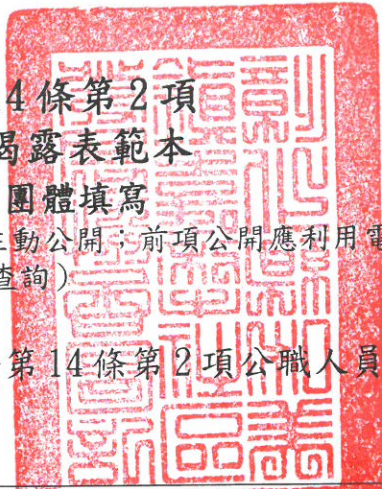 4條第2項
揭露表範本
團體填寫
主動公開；前項公開應利用電
查詢）
第14條第2項公職人員
彰化縣和美